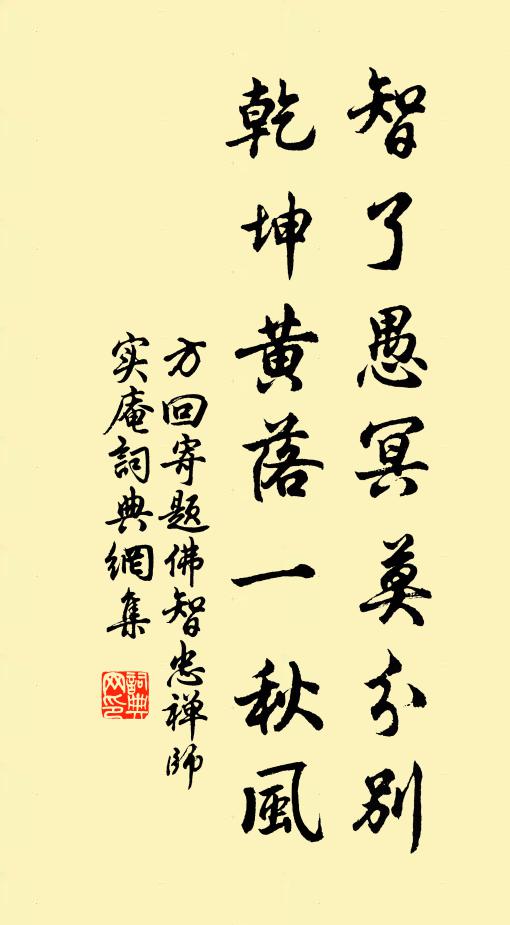 智了愚冥莫分别
乾坤黃落一秋風
方回寄題佛智忠禅師
实庵詞典網集
詞典网印